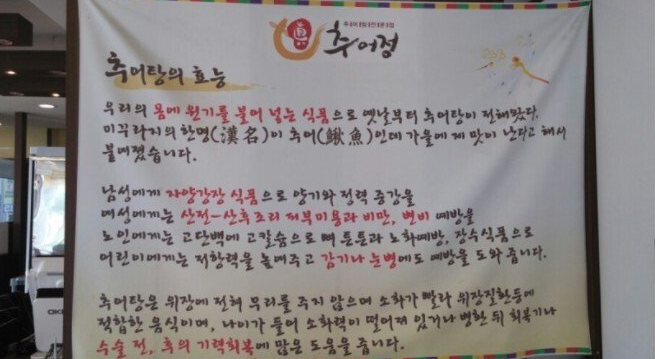 眞
추어정
추어탕의 효능
우리의 몸에 원기를 불어 넣는 식품으로 옛날부터 추어탕이 전해왔다.
미꾸라지의 한명(漢名)이 추어(鰍魚)인데 가을에 제 맛이 난다고 해서
붙여졌습니다.
남성에게 자양강장 식품으로 양기와 정력 증강을
여성에게는 산전-산후조리 피부미용과 비만, 변비 예방을
노인에게는 고단백에 고칼슘으로 뼈 튼튼과 노화예방, 장수식품으로
어린이에게는 저항력을 높여주고 감기나 눈병에도 예방을 도와 줍니다.
추어탕은 위장에 전혀 무리를 주지 않으며 소화가 빨라 위장질환등에
적합한 음식이며, 나이가 들어 소화력이 떨어져 있거나 병환 뒤 회복기나
수술 전, 후의 기력회복에 많은 도움을 줍니다.
OKI